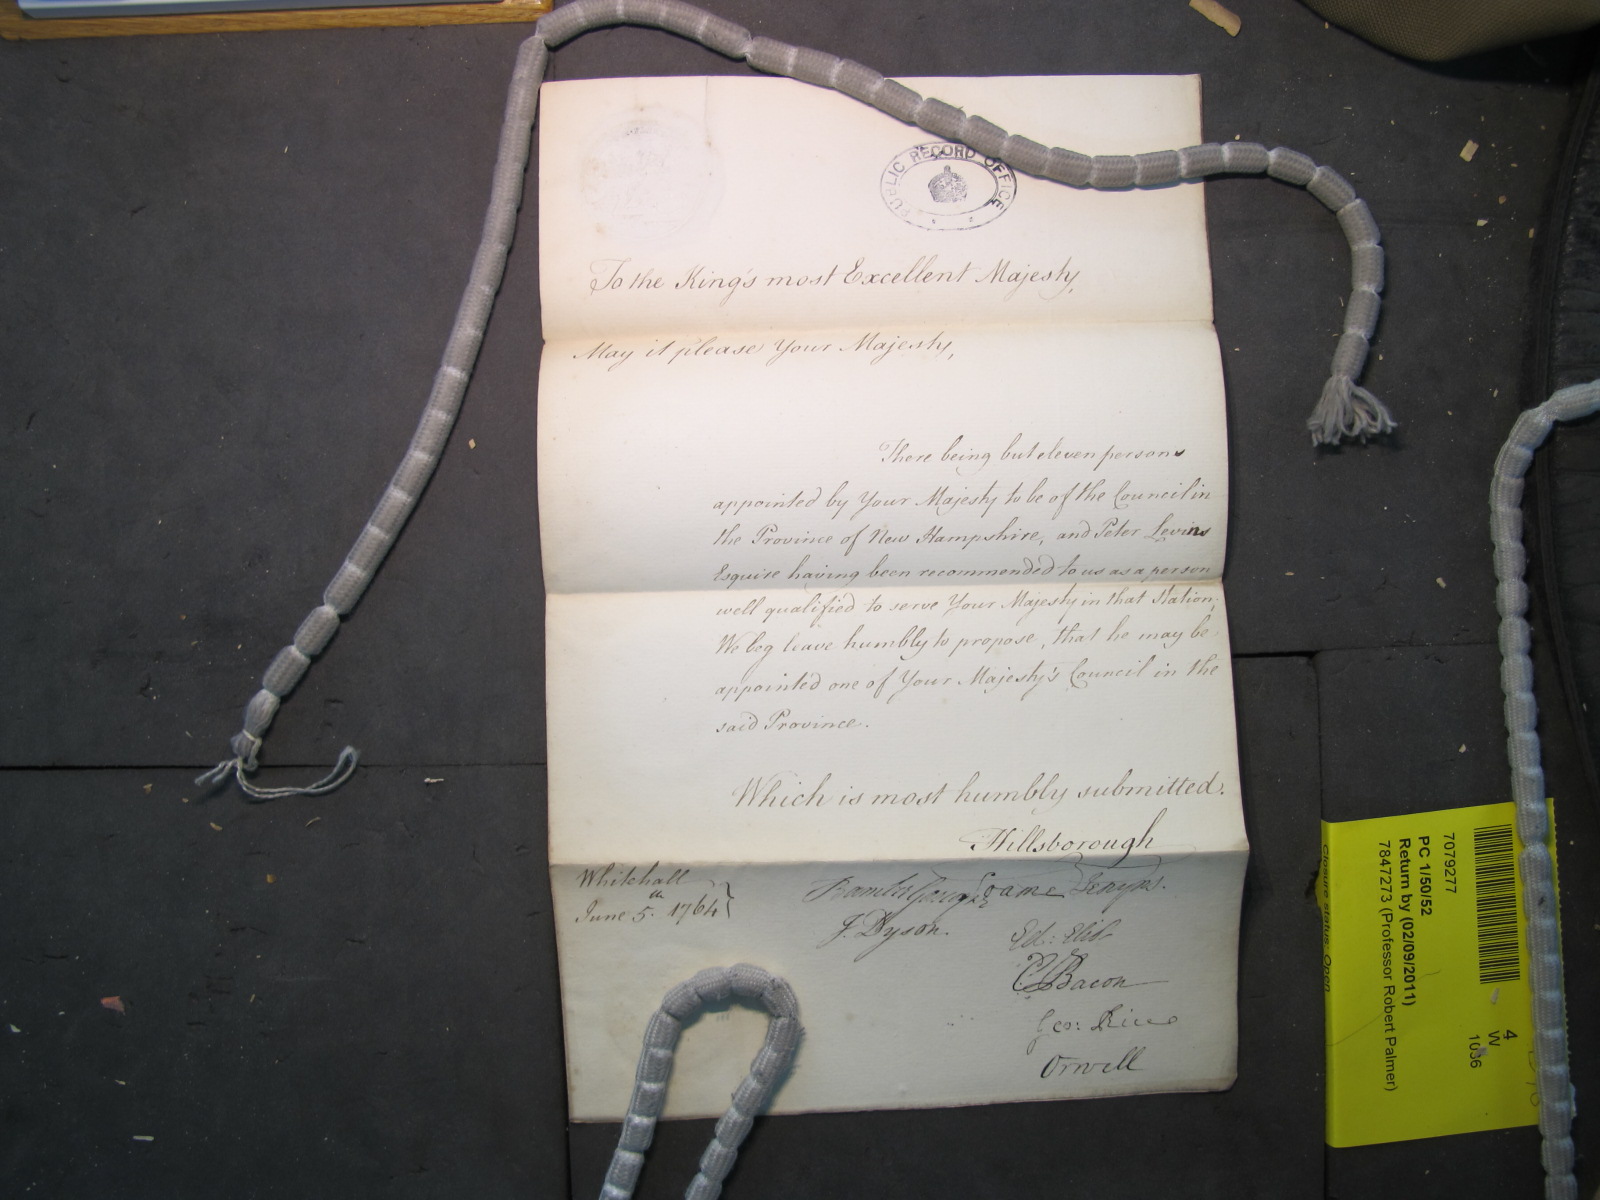 PUBLIC RECORD OFFICE
To the King's most Excellent Majesty,
May it please Your Majesty,
There being but eleven persons
appointed by Your Majesty to be of the Council in
the Province of New Hampshire, and Peter Levius
Esquire having been recommended to us as a person
well qualified to serve Your Majesty in that Station;
We beg leave humbly to propose, that he may be
appointed one of Your Majesty's Council in the
said Province.
Which is most humbly submitted.
Hillsborough
Whitehall
June 5th. 1764
Soame Jenyns.
J. Dyson.
Ed: Eliot
Bacon
Geo: Rice
Orwell
7079277
PC 1/50/52
Return by (02/09/2011)
7847273 (Professor Robert Palmer)
Closure status: Open
4
W
1036